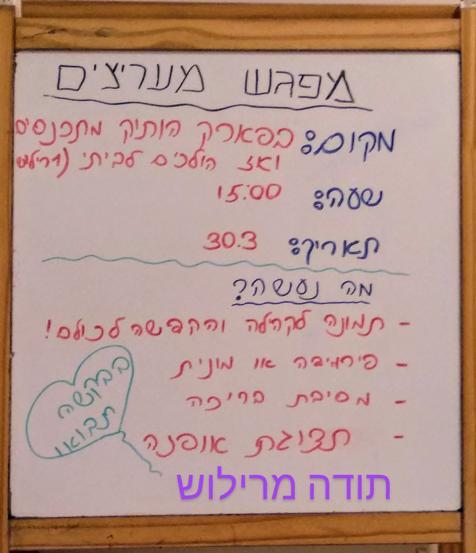 מפגש מעריצים
מקום: בפארק הותיק מתכנסים
ואז הולכים לביתי (מרילוש
שעה: 15:00
תאריך: 30.3
מה נעשה?
- תמונה לקהילה והקפשה לכולם!
- פירמידה או מונית
- מסיבת בריכה
- תצוגת אופנה
בבקשה
תבואו
תודה מרילוש